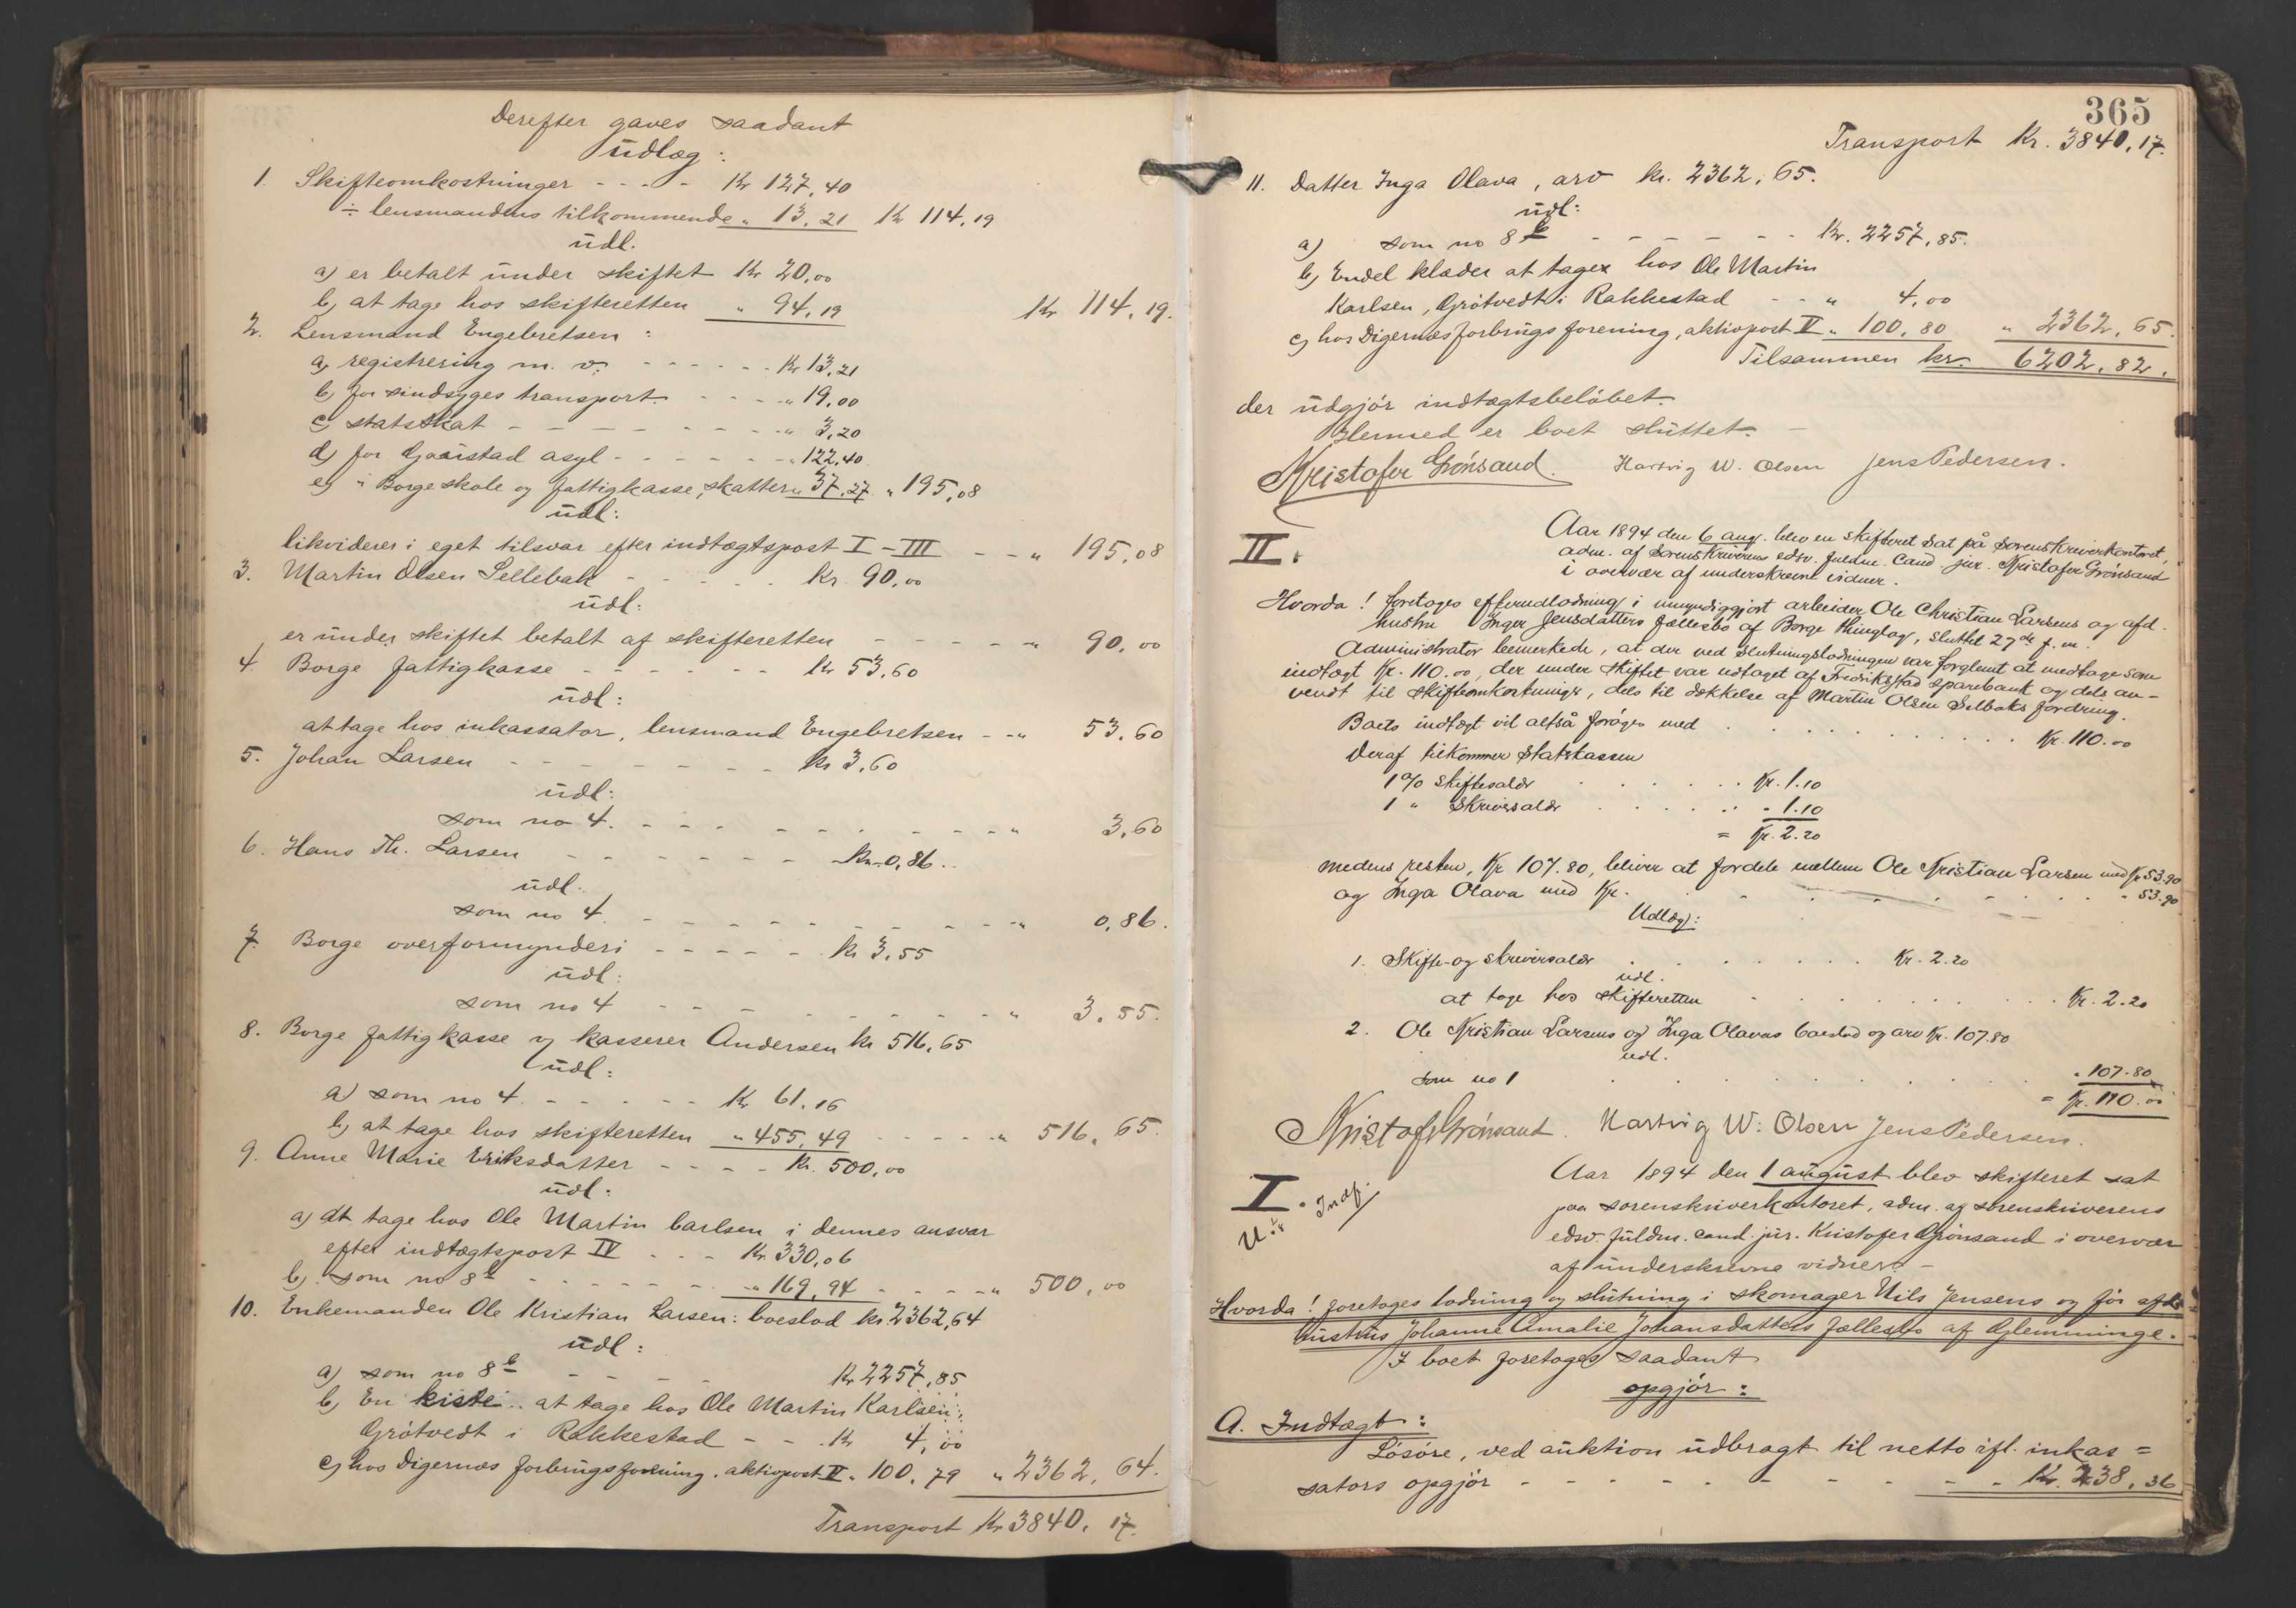 Derefter gaves saadant
Udlæg:
1. Skifteomkostninger - - - - Kr 127,40
÷ lensmandens tilkommende „ 13,21 Kr 114,19
Udl.
a) er betalt under skiftet Kr 20,00
b) at tage hos skifteretten „ 94,19 Kr 114,19.
2. Lensmand Engebretsen:
a) registrering m. v. - - - - - - Kr 13,21
b) for sindsyges transport - - - - „ 19,00
c) statsskat - - - - - - - - „ 3,20
d) for Gaustad asyl - - - - - - „ 122,40
e) „ Borge skole og fattigkasse, skatter „ 37,27 „ 195,08
Udl:
likviderer i eget tilsvar efter indtægtspost I – III - - „ 195,08
3. Martin Olsen Sellebak - - - - - Kr. 90,00
Udl:
er under skiftet betalt af skifteretten - - - - - „ 90,00
4. Borge fattigkasse - - - - - - Kr 53,60
Udl:
at tage hos inkassator, lensmand Engebretsen - - „ 53,60
5. Johan Larsen - - - - - - - - Kr 3,60
Udl:
som no 4. - - - - - - - - - - „ 3,60
6. Hans Th. Larsen - - - - - - Kr 0,86..
Udl.
som no 4. - - - - - - - - - - „ 0,86.
7. Borge overformynderi - - - - - Kr 3,55
Udl:
som no 4 - - - - - - - - - „ 3,55.
8. Borge fattigkasse v kasserer Andersen kr 516,65
Udl:
a) som no 4. - - - - - Kr 61,16
b) at tage hos skifteretten „ 455,49 - - - - - „ 516,65.
9. Anne Marie Eriksdatter - - - - Kr. 500,00
Udl:
a) at tage hos Ole Martin Carlsen i dennes ansvar
efter indtægtspost IV - - - Kr. 330,06
b) som no 8b - - - - - - - „ 169,94 - - - - „ 500,00
10. Enkemanden Ole Kristian Larsen: boeslod kr. 2362,64
Udl:
a) som no 8b - - - - Kr 2257,85
b) En kiste.. at tage hos Ole Martin Karlsen
Grötvedt i Rakkestad - - . Kr 4,00
c) hos Digernes forbrugsforening, aktivpost V „ 100,79 „ 2362,64.
Transport Kr 3840,17.
365
Transport Kr. 3840,17.
11. Datter Inga Olava, arv kr. 2362,65.
Udl:
a) som no 8b - - - - - - Kr. 2257,85.
b) Endel klæder at tage hos Ole Martin
Karlsen, Grötvedt i Rakkestad - - „ 4,00
c) hos Digernes forbrugsforening, aktivpost V „ 100,80 „ 2362,65.
Tilsammen kr. 6202,82.
der udgjör indtægtsbelöbet.
Hermed er boet sluttet. –
Kristofer Grönsand. Hartvig W. Olsen Jens Pedersen.
II. Aar 1894 den 6 aug. blev en skifteret sat på sorenskriverkontoret,
adm. af sorenskriverens edsv. fuldm. cand. jur. Kristofer Grönsand
i overvær af underskrevne vidner.
Hvorda! foretoges efterudlodning i umyndiggjort arbeider Ole Christian Larsens og afd.
hustru Inger Jensdatters fællesbo af Borge thinglag, sluttet 27de f. m.
Administrator bemerkede, at der ved slutningslodningen var forglemt at medtage som
indtægt Kr. 110.00, der under skiftet var udtaget af Fredrikstad sparebank og dels an-
vendt til skifteomkostninger, dels til dækkelse af Martin Olsen Selbaks fordring.
Boets indtægt vil altså foröges med . . . . . . . . . Kr. 110.00
Deraf tilkommer statskassen
1 % skiftesalær . . . . . . Kr. 1.10
1 „ skriversalær . . . . . . „ 1.10
= Kr. 2.20
medens resten, Kr 107.80, bliver at fordele mellem Ole Kristian Larsen med Kr 53.90
og Inga Olava med Kr. . . . . . . . . „ 53.90
Udlæg:
1. Skifte- og skriversalær . . . . . . . Kr. 2.20
udl.
at tage hos skifteretten . . . . . . . . . Kr. 2.20
2. Ole Kristian Larsens og Inga Olavas boeslod og arv Kr. 107.80
udl.
som no 1 . . . . . . . . . „ 107.80
= Kr. 110.00
Kristofer Grönsand. Hartvig W. Olsen Jens Pedersen.
I. Aar 1894 den 1 august blev skifteret sat
paa sorenskriverkontoret, adm. af sorenskriverens
edsv. fuldm. cand. jur. Kristofer Grönsand i overvær
af underskrevne vidner. –
Hvorda! foretoges lodning og slutning i skomager Nils Jensens og før afd.
hustrus Johanne Amalie Johansdatters fællesbo af Glemminge.
I boet foretoges saadant
opgjör:
A. Indtægt:
Lösöre, ved auktion udbragt til netto ifl. inkas =
sators opgjör - - - - - - - - - - Kr. 238,36